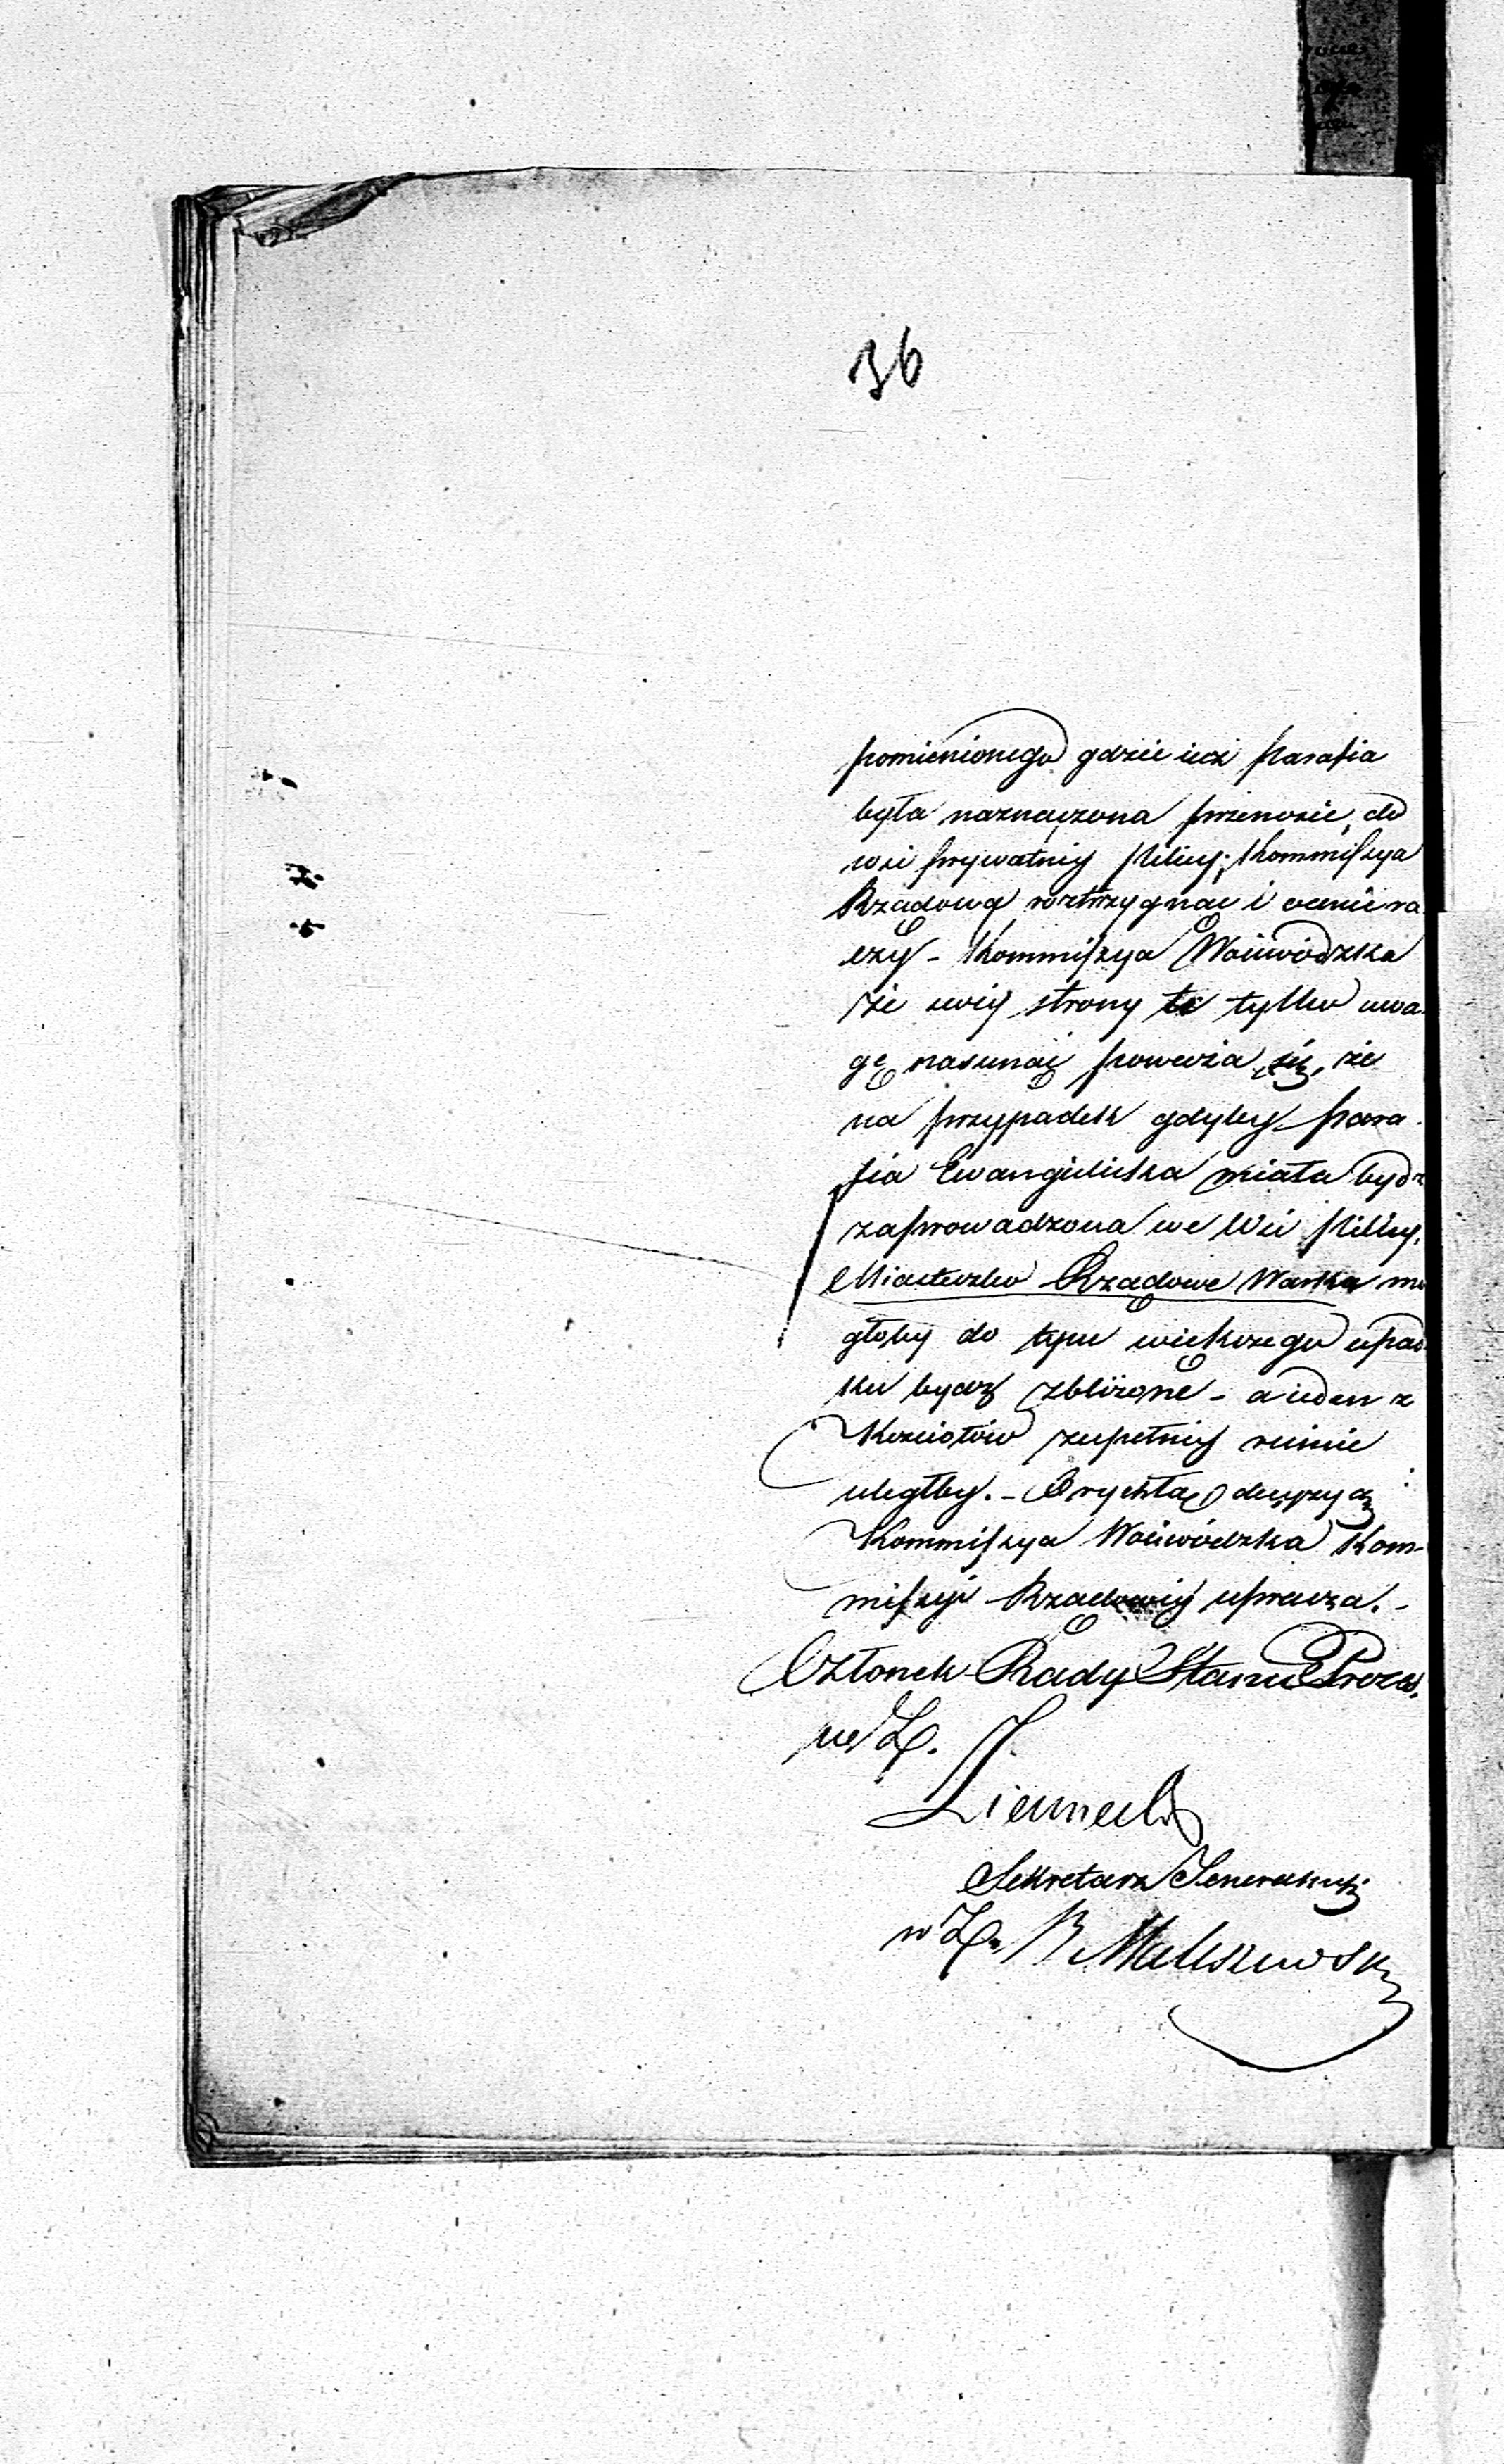 36
pomienionego gdzie już Parafia
była naznaczona przenosić do
wsi prywatney Pilicy; Kommissya
Rządowa roztrzygnąć i ocenić ra
czy – Kommissya Woiewódzka
ze swéy strony tę tylko uwa
gę nasunąć poważa się, że
na przypadek gdyby para
fia Ewangielicka miała bydz
zaprowadzona we Wsi Pilicy,
Miasteczko Rządowe Warka mo
głoby do tym większego upad
ku bydz zbliżone – a ieden z
Kościołów zupełney ruinie
uległby. – O rychłą decyzyą
Kommissya Woiewódzka Kom-
missyi Rządowéy uprasza. –
Członek Rady Stanu Prezes
w Z.
Sekretarz Generalny
w Z.